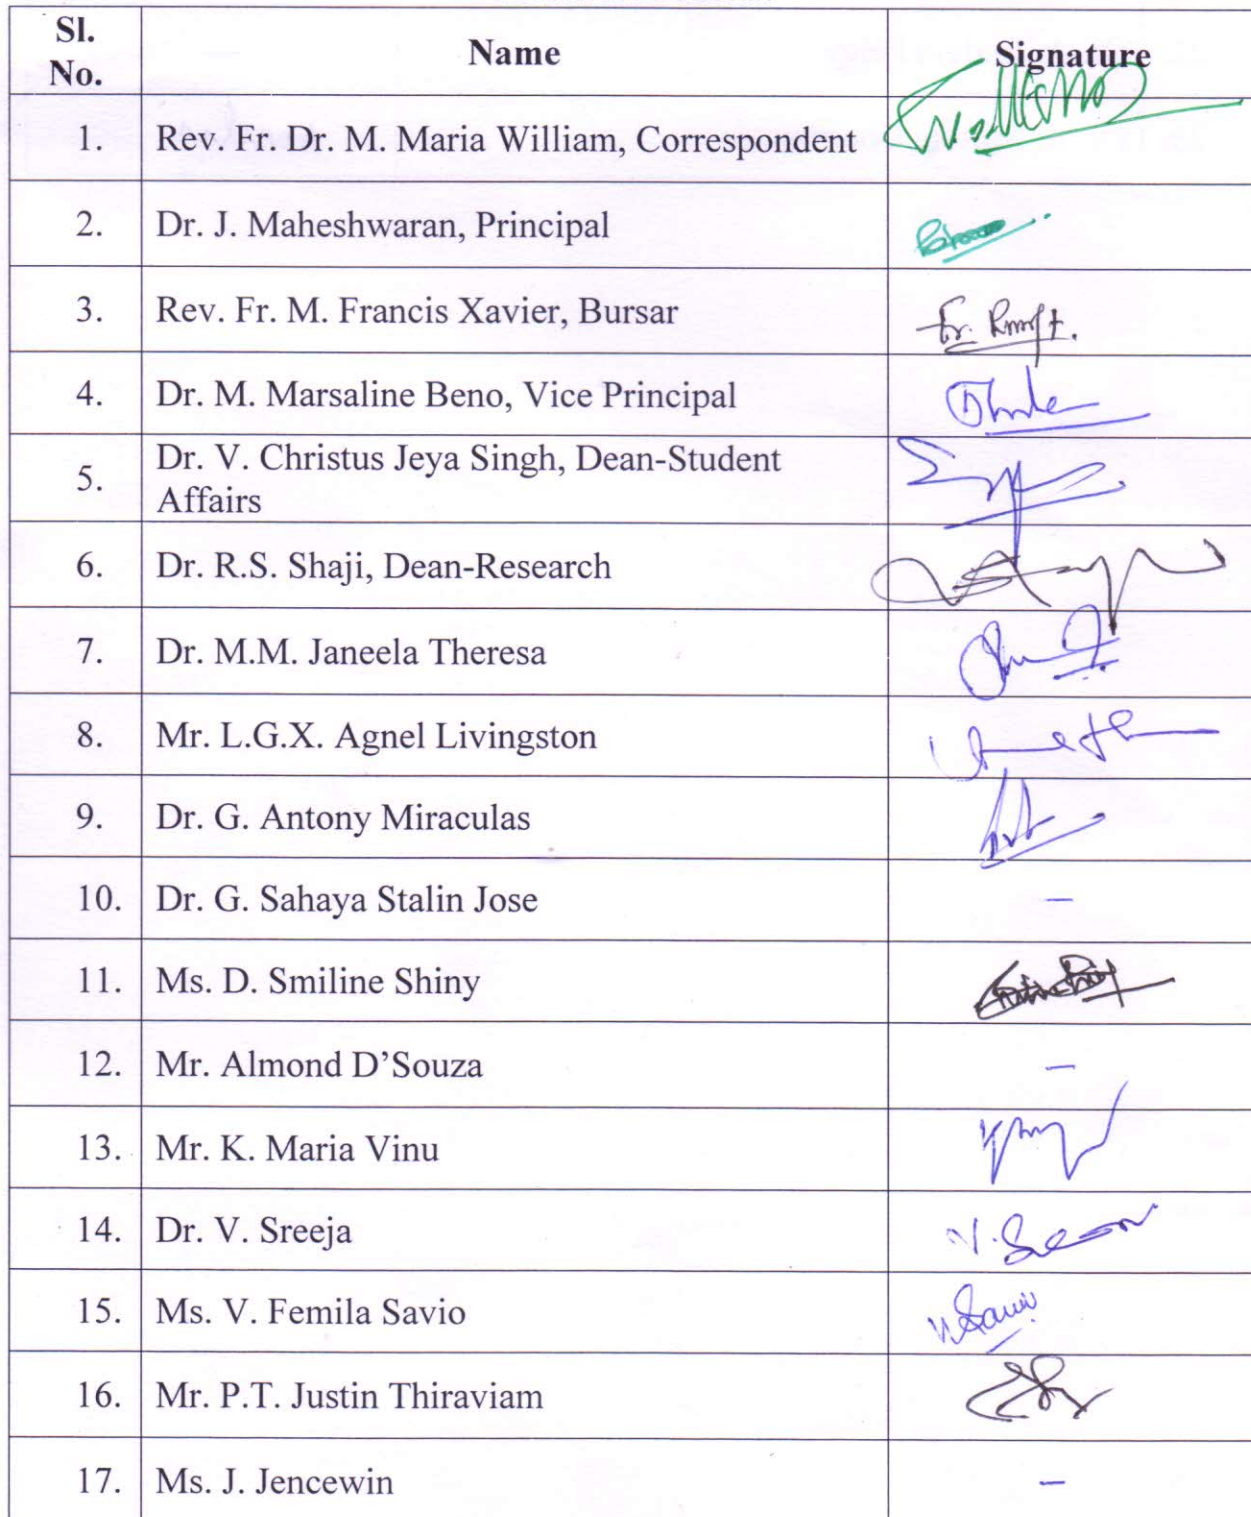 Sl. No. Name Signature
1. Rev. Fr. Dr. M. Maria William, Correspondent
2. Dr. J. Maheshwaran, Principal
3. Rev. Fr. M. Francis Xavier, Bursar
4. Dr. M. Marsaline Beno, Vice Principal
5. Dr. V. Christus Jeya Singh, Dean-Student
Affairs
6. Dr. R.S. Shaji, Dean-Research
7. Dr. M.M. Janeela Theresa
8. Mr. L.G.X. Agnel Livingston
9. Dr. G. Antony Miraculas
10. Dr. G. Sahaya Stalin Jose –
11. Ms. D. Smiline Shiny
12. Mr. Almond D’Souza –
13. Mr. K. Maria Vinu
14. Dr. V. Sreeja
15. Ms. V. Femila Savio
16. Mr. P.T. Justin Thiraviam
17. Ms. J. Jencewin –